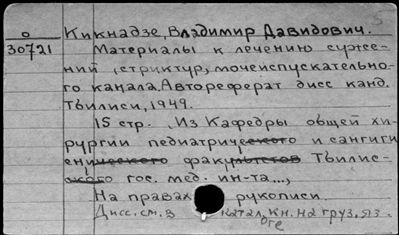 0
30721
Кикнадзе, Владимир Давидович.
Материалы к лечению суже-
ний (структур, мочеиспускательно-
го канала. Автореферат дисс канд.
Тбилиси, 1949.
15 стр. Из Кафедры общей хи-
рургии педиатрического и сангиги
енического факультетов Тбилис-
ского гос. мед. ин-та...,
На правах рукописи.
Дисс. см. в катал. кн. на груз. яз.